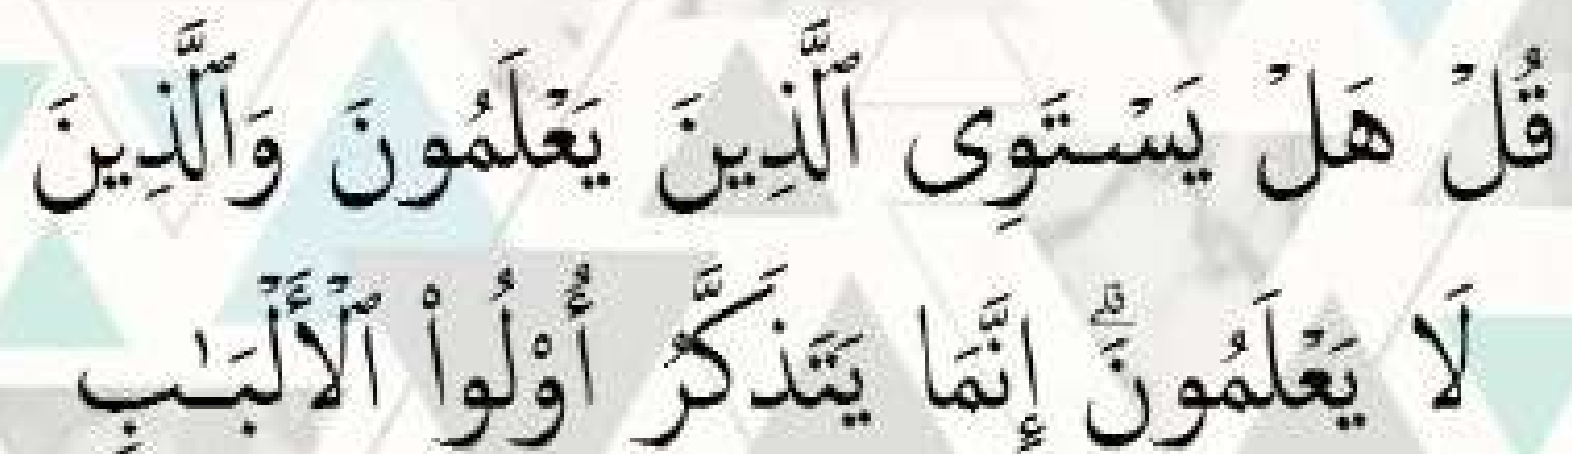 قُلْ هَلْ يَسْتَوِى ٱلَّذِينَ يَعْلَمُونَ وَٱلَّذِينَ
لَا يَعْلَمُونَ ۗ إِنَّمَا يَتَذَكَّرُ أُو۟لُوا۟ ٱلْأَلْبَـٰبِ